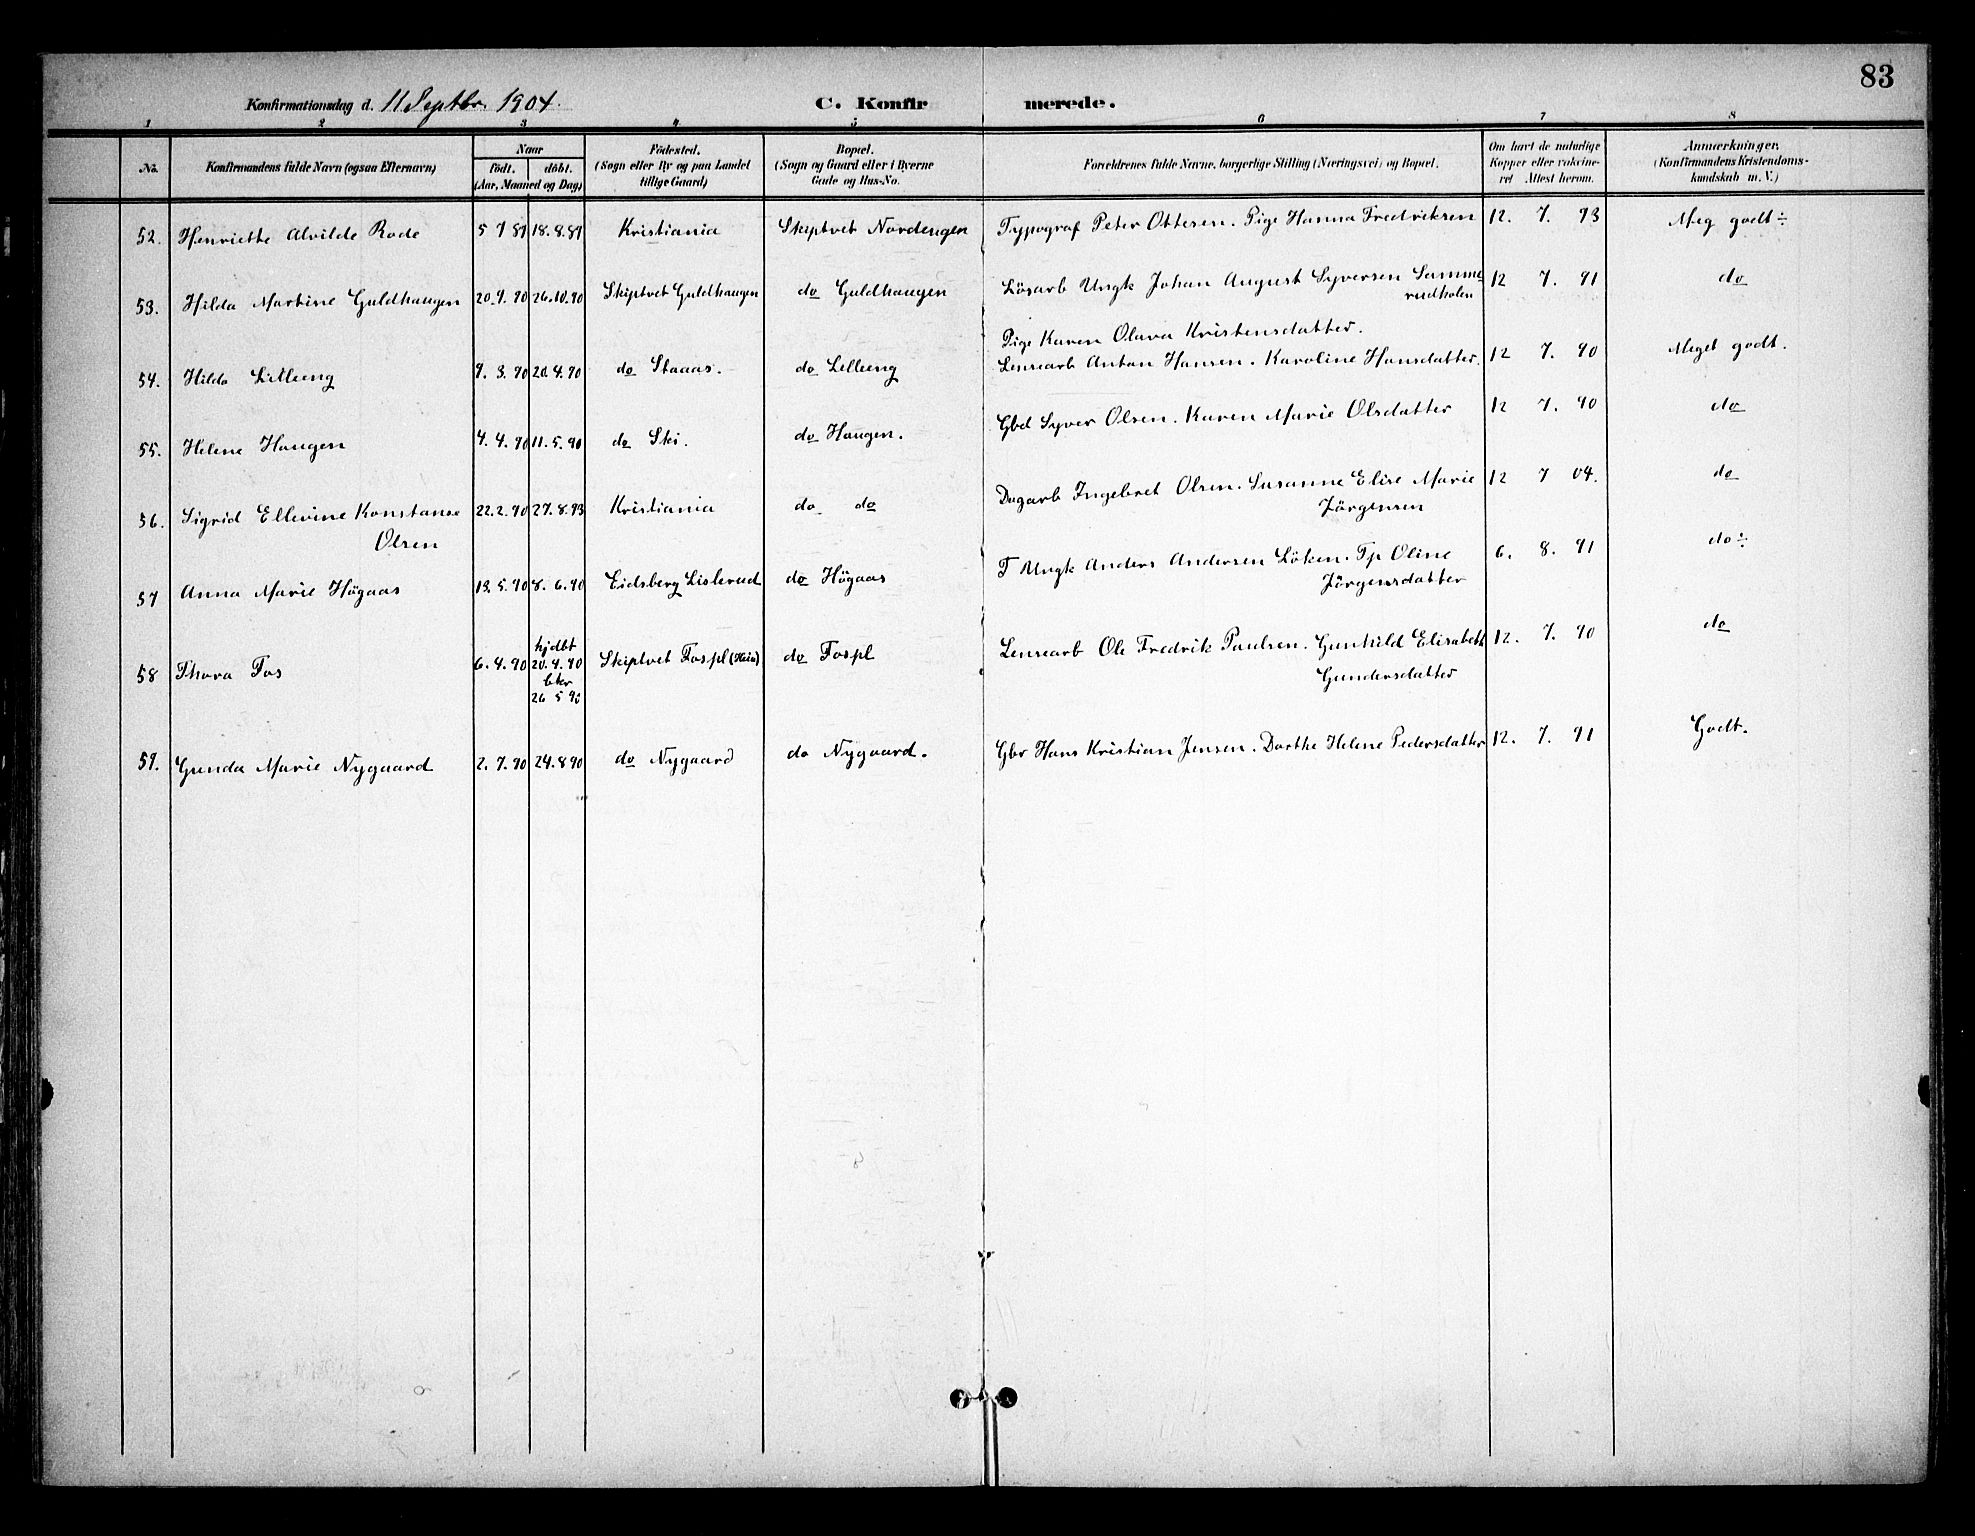 83
Konfirmationsdag d. 11 Septbr. 1904.
C. Konfirmerede.
1 2 3 4 5 6 7 8
No. Konfirmandens fulde Navn (ogsaa Efternavn) Naar födt. döbt. (Aar, Maaned og Dag) Födested. (Sogn eller By og paa Landet tillige Gaard) Bopæl. (Sogn og Gaard eller i Byerne Gade og Hus-No. Forældrenes fulde Navne, borgerlige Stilling (Næringsvei) og Bopæl. Om havt de naturlige Kopper eller vakcineret Attest herom. Anmærkninger, (Konfirmandens Kristendomskundskab m. V.)
52. Henriette Alvilde Rode 5 7 89 18.8.89 Kristiania Skiptvet Nordengen Typograf Peter Ottesen. Pige Hanna Fredriksen 12. 7. 93 Meg godt ÷
53. Hilda Martine Guldhaugen 20.9.90 26.10.90 Skiptvet Guldhaugen do Guldhaugen Lösarb Ungk Johan August Syversen Samme= 12 7. 91 do
rudholen
Pige Karen Olava Kristensdatter.
54. Hilda Lilleeng 9. 3. 90 20.4.90 do Staaas. do Lelleeng Lensearb Anton Hansen. Karoline Hansdatter. 12 7. 90 Meget godt.
55. Helene Haugen 4. 4. 90 11. 5. 90 do Ski. do Haugen. Gbd Syver Olsen. Karen Marie Olsdatter 12 7. 90 do
56. Sigrid Ellevine Konstanse 22.2.90 27.8.93 Kristiania do do Dagarb Ingebret Olsen. Susanne Elise Marie 12 7 04. do
Olsen Jörgensen
57 Anna Marie Högaas 13. 5. 90 8. 6. 90 Eidsberg Lislerud do Högaas T Ungk Anders Andersen Löken. Tp Oline 6. 8. 91 do ÷
Jörgensdatter
58 Thora Fos 6. 4. 90 hjdbt 20.4.90 bkr 26 5 90 Skiptvet Fospl (Heia) do Fospl Lensearb Ole Fredrik Paulsen. Gunhild Elisabeth 12. 7. 90 do
Gundersdatter
59. Gunda Marie Nygaard 2. 7. 90 24.8 90 do Nygaard do Nygaard. Gbr Hans Kristian Jensen. Dorthe Helene Pedersdatter 12. 7. 91 Godt.